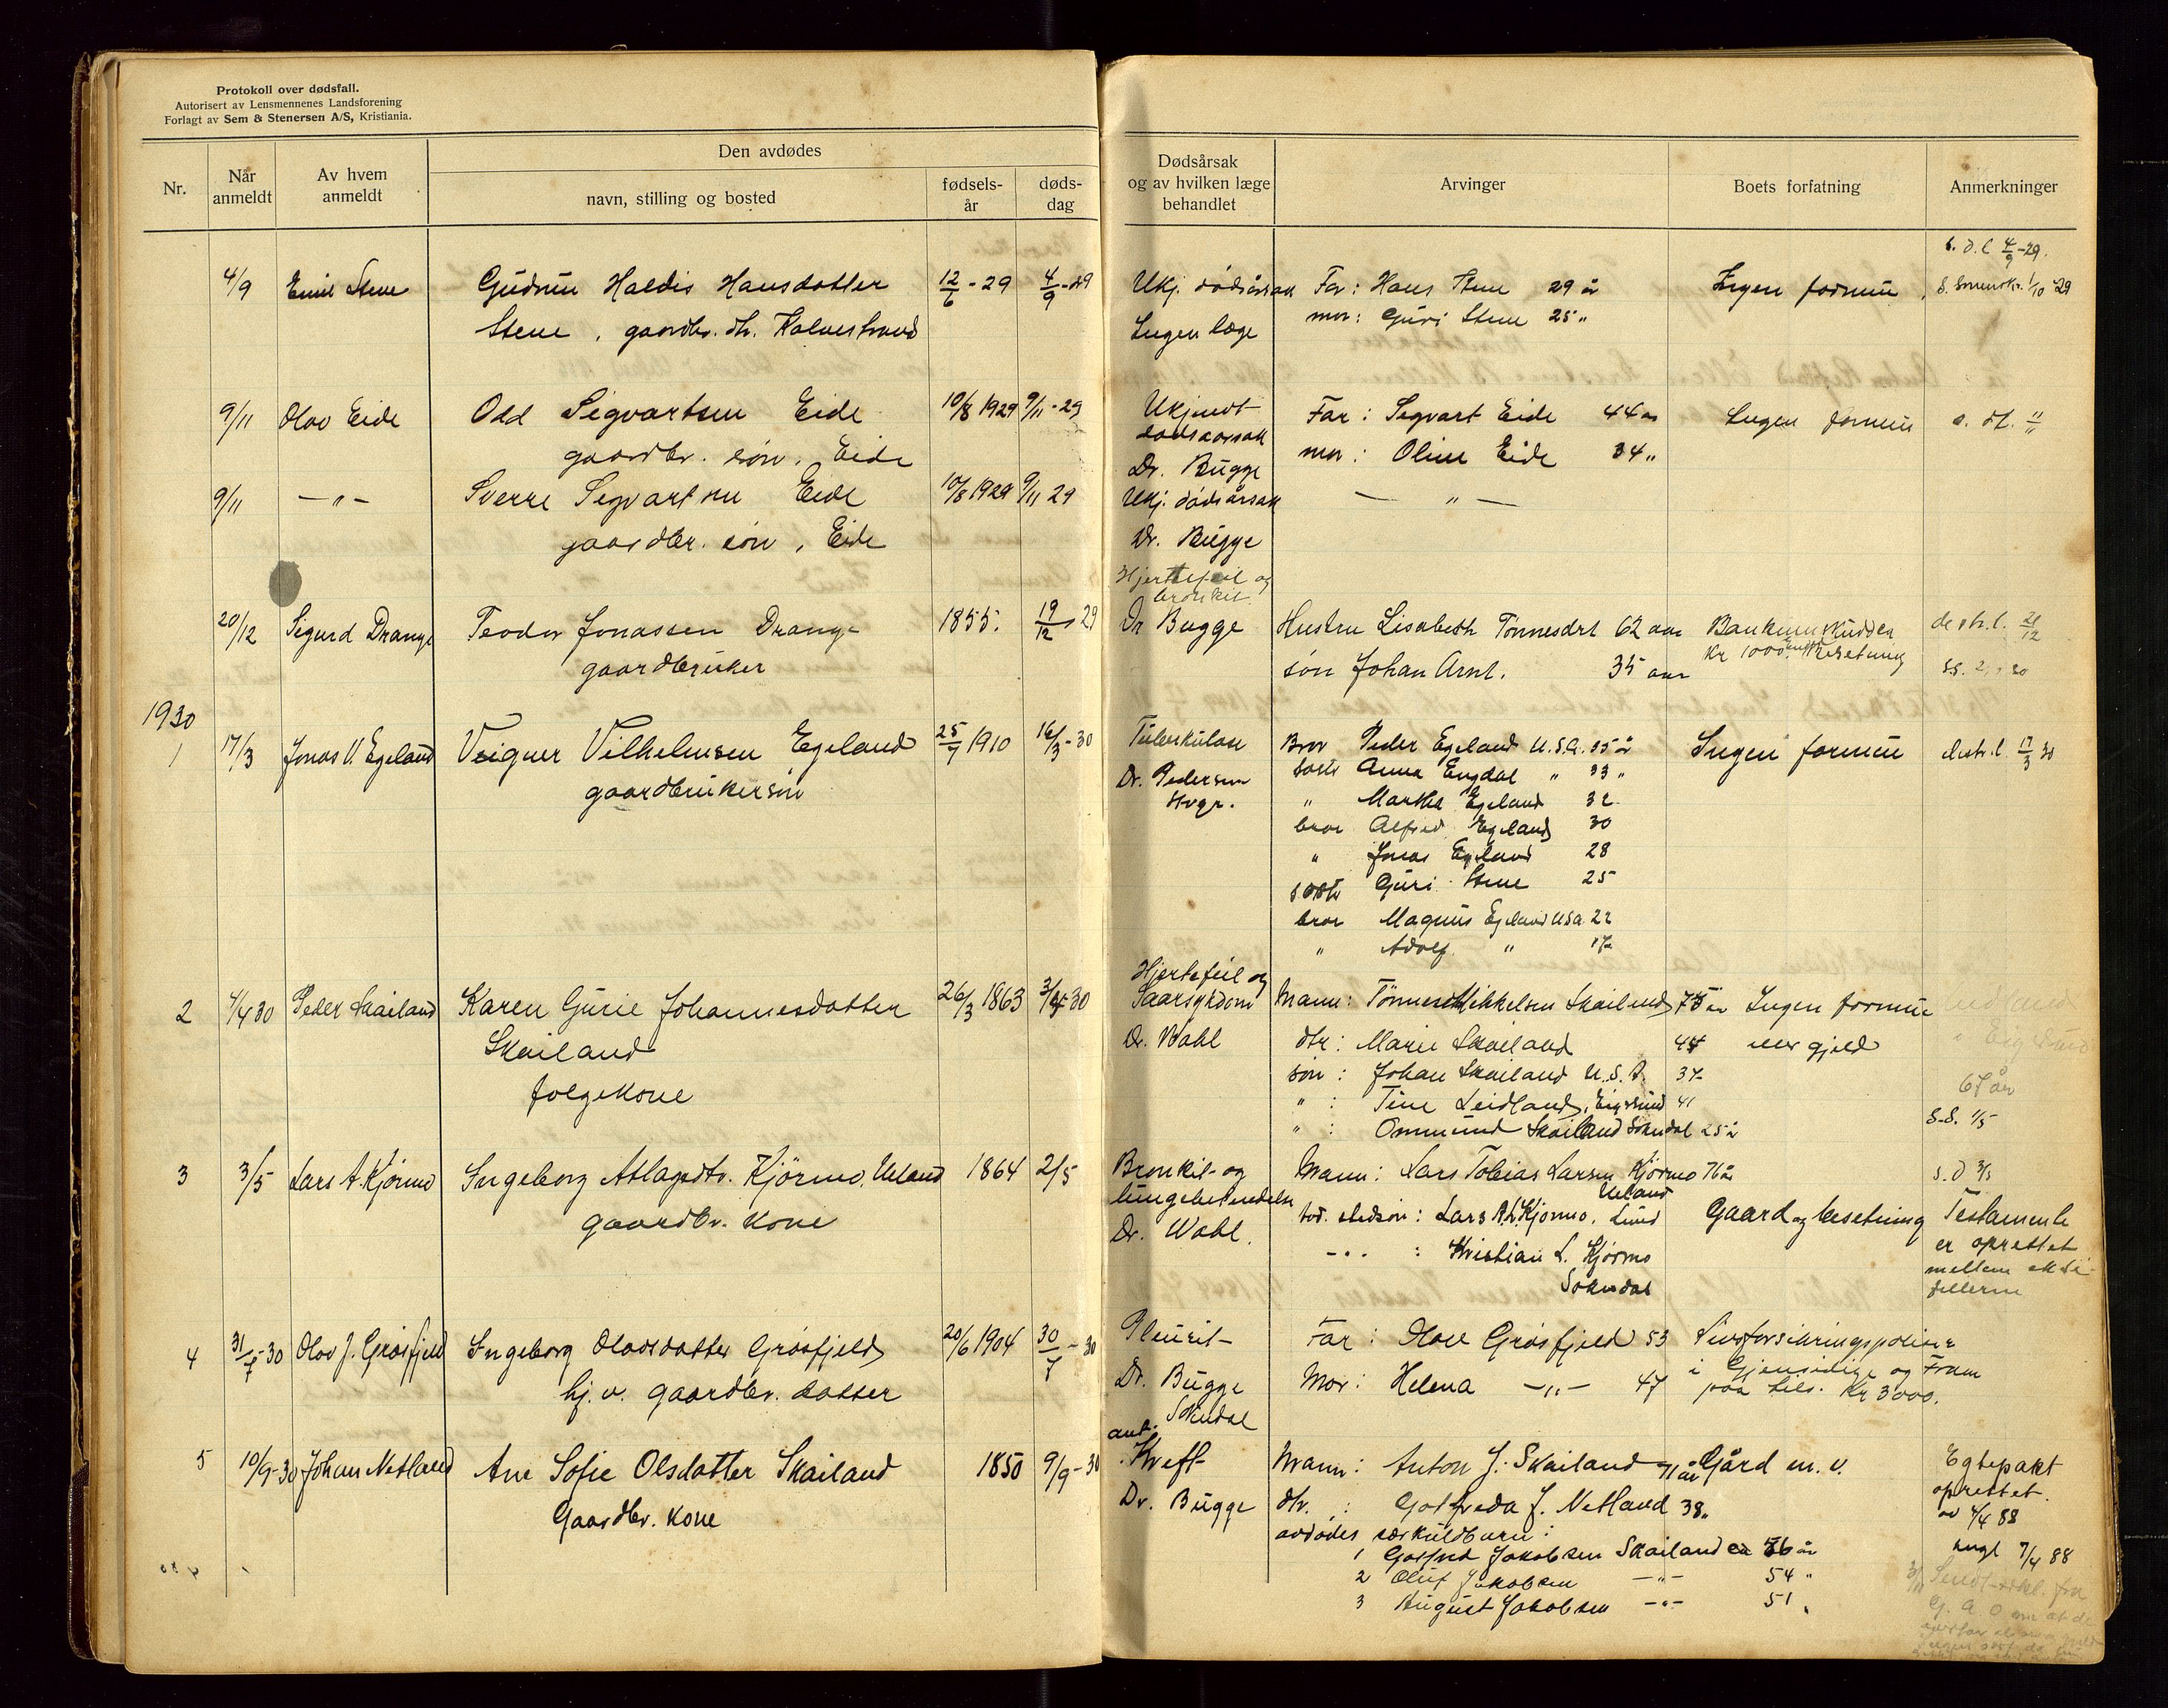 Protokoll over dødsfall.
Autorisert av Lensmennenes Landsforening
Forlagt av Sem & Stenersen A/S, Kristiania.
Nr.
Når anmeldt
Av hvem anmeldt
Den avdødes
navn, stilling og bosted
fødsels-år
døds-dag
Dødsårsak og av hvilken læge behandlet
Arvinger
Boets forfatning
Anmerkninger
4/9 Emil Stene Gudrun Haldis Hansdatter 12/6 - 29 4/9 - 29 Ukj. dødsårsak Far: Hans Stene 29 år Ingen formue
Stene, gaardbr. dtr. Kalvestrand Ingen læge mor: Guri Stene 25 "
9/11 Olav Eide Odd Sigvartsen Eide 10/8 1929 9/11-29 Ukjendt Far: Sigvart Eide 44 år Ingen formue
gaardbr. søn, Eide dødsaarsak mor: Oline Eide 34 "
Dr. Bugge
9/11 — " — Sverre Sigvartsen Eide 10/8 1929 9/11 29 Ukj. dødsårsak — " —
gaardbr. søn, Eide Dr. Bugge
Hjertefeil og
bronkit
20/12 Sigurd Drange Teodor Jonassen Drange 1855. 19/12 - 29 Dr Bugge Hustru Lisabeth Tønnesdtr 62 aar Bankinnskudd
gaardbruker søn Johan Arnt. 35 aar Kr 1000 Besetning
1930
1 17/3 Jonas V. Egeland Veigner Vilhelmsen Egeland 25/7 1910 16/3 - 30 Tuberkulose Bror Peder Egeland U.S.A. 35 år Ingen formue d.str.l. 17/3 30
gaardbrukersøn Dr. Pedersen søster Anna Engdal " 33 "
" Martha Egeland 32
bror Alfred Egeland 30
" Jonas Egeland 28
søster Guri Stene 25
bror Magnus Egeland USA 22
" Adolf " 17
Hjertefeil og
2 4/4 30 Peder Skailand Karen Gurie Johannesdatter 26/3 1863 3/4-30 Mann: Tønnes Mikkelsen Skailand 75 år Ingen formue
Skailand Dr. Wahl dtr: Marie Skailand 44 eller gjeld
folgekone søn: Johan Skailand U.S.A. 37
" : Tine Leidland, Eigersund 41 67 år
" : Ommund Skailand Sokndal 25 år S.S. 1/5
3 3/5 Lars A. Kjørmo Ingeborg Atlagsdtr. Kjörmo, Ueland 1864 2/5 Bronkit og Mann: Lars Tobias Larsen Kjørmo 76 år S.D 3/5
gaardbr. kone lungebetendelse Ueland
Dr. Wahl. stedsøn: Lars A.L. Kjørmo, Lund Gaard og besetning Testamente
— " — : Kristian L. Kjørmo er oprettet
Sokndal mellem ekte-
fellerne
4 31/7-30 Olav J. Grøsfjeld Ingeborg Olavsdatter Grøsfjeld 20/6 1904 30/7 - 30 Pleurit Far: Olav Grøsfjeld 53 Livsforsikringspoliser
hj. v. gaardbr. datter Dr. Bugge Mor: Helena — " — 47 i Gjensidige og Fram
Sokndal paa tils. Kr 3000.
5 10/9-30 Johan Netland Ane Sofie Olsdatter Skailand 1850 9/9-30 ant. Kreft Mann: Anton J. Skailand 71 år Gård m. v. Egtepakt
Gaardbr. kone Dr. Bugge dtr. : Gotfreda J. Netland 38 " oprettet
avdødes særkuldbarn: av 4/4 88
1 Gotfred Jakobsen Skailand 56 år tingl 7/4 88
2 Oluf Jakobsen — " — 54 "
3 August Jakobsen — " — 51 "